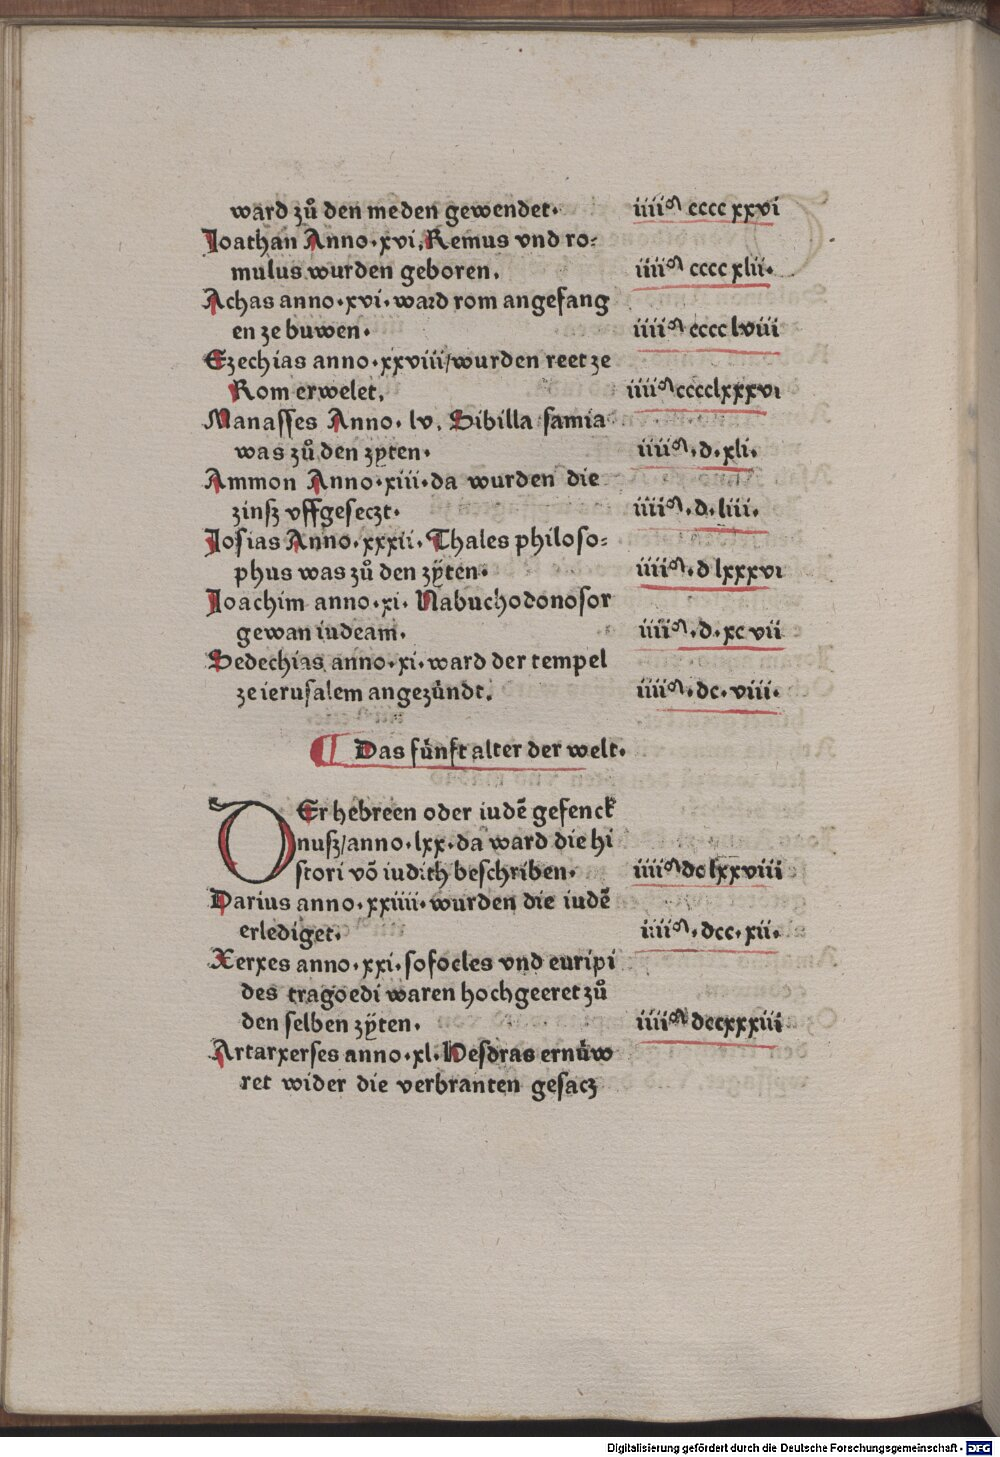 ward zů den meden gewendet· iiiiᵐ cccc xxvi
Joathan Anno·xvi, Remus vnd ro⸗
mulus wurden geboren. iiiiᵐ cccc xlii·
Achas anno·xvi·ward rom angefang
en ze buwen· iiiiᵐ cccc lviii
Ezechias anno·xxviii/wurden reet ze
Rom erwelet. iiiiᵐ cccclxxxvi
Manasses Anno· lv. Sibilla samia
was zů den zyten· iiiiᵐ·d·xli·
Ammon Anno·xiii·da wurden die
zinß vffgeseczt· iiiiᵐ·d·liii·
Josias Anno·xxxii·Thales philoso⸗
phus was zů den zÿten· iiiiᵐ·d lxxxvi
Joachim anno·xi·Nabuchodonosor
gewan iudeam· iiiiᵐ·d·xc vii
Sedechias anno·xi·ward der tempel
ze ierusalem angezündt. iiiiᵐ·dc·viii·
¶ Das fünft alter der welt·
DEr hebreen oder iudē gefenck
nuß/anno·lxx·da ward die hi
stori vō iudith beschriben· iiiiᵐ dc lxxviii
Darius anno·xxiiii·wurden die iudē
erlediget· iiiiᵐ·dcc·xii·
Xerxes anno·xxi·sofocles vnd euripi
des tragoedi waren hochgeeret zů
den selben zÿten· iiiiᵐ dccxxxiii
Artarxerses anno·xl·Hesdras ernüw
ret wider die verbranten gesacz
Digitalisierung gefördert durch die Deutsche Forschungsgemeinschaft - DFG